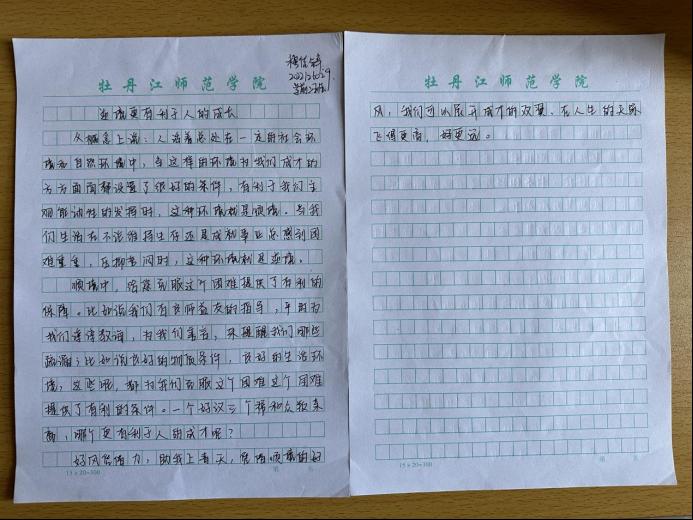 牡丹江师范学院
2021210529
顺境更有利于人的成长
从概念上说:人活着总处在一定的社会环
境和自然环境中,当这样的环境为我们成才的
方方面面都设置了很好的条件,有利于我们主
观能动性的发挥时,这种环境就是顺境。当我
们生活在不论维持生存还是成就事业总感到困
难重重,压抑苦闷时,这种环境则是逆境。
顺境中,给克服这个困难提供了有利的
保障。比如说我们有良师益友的指导,平时为
我们谆谆教诲,为我们着想,来提醒我们哪些
疏漏;比如说良好的物质条件,良好的生活环
境,这些呢,都为我们克服这个困难这个困难
提供了有利的条件。一个好汉三个帮和众叛亲
离,哪个更有利于人的成才呢?
好风凭借力,助我上青天,凭借顺境的好
15×20=300
第 页
牡丹江师范学院
风,我们可以展开成才的双翼,在人生的天际
飞得更高,好更远。
15×20=300
第 页